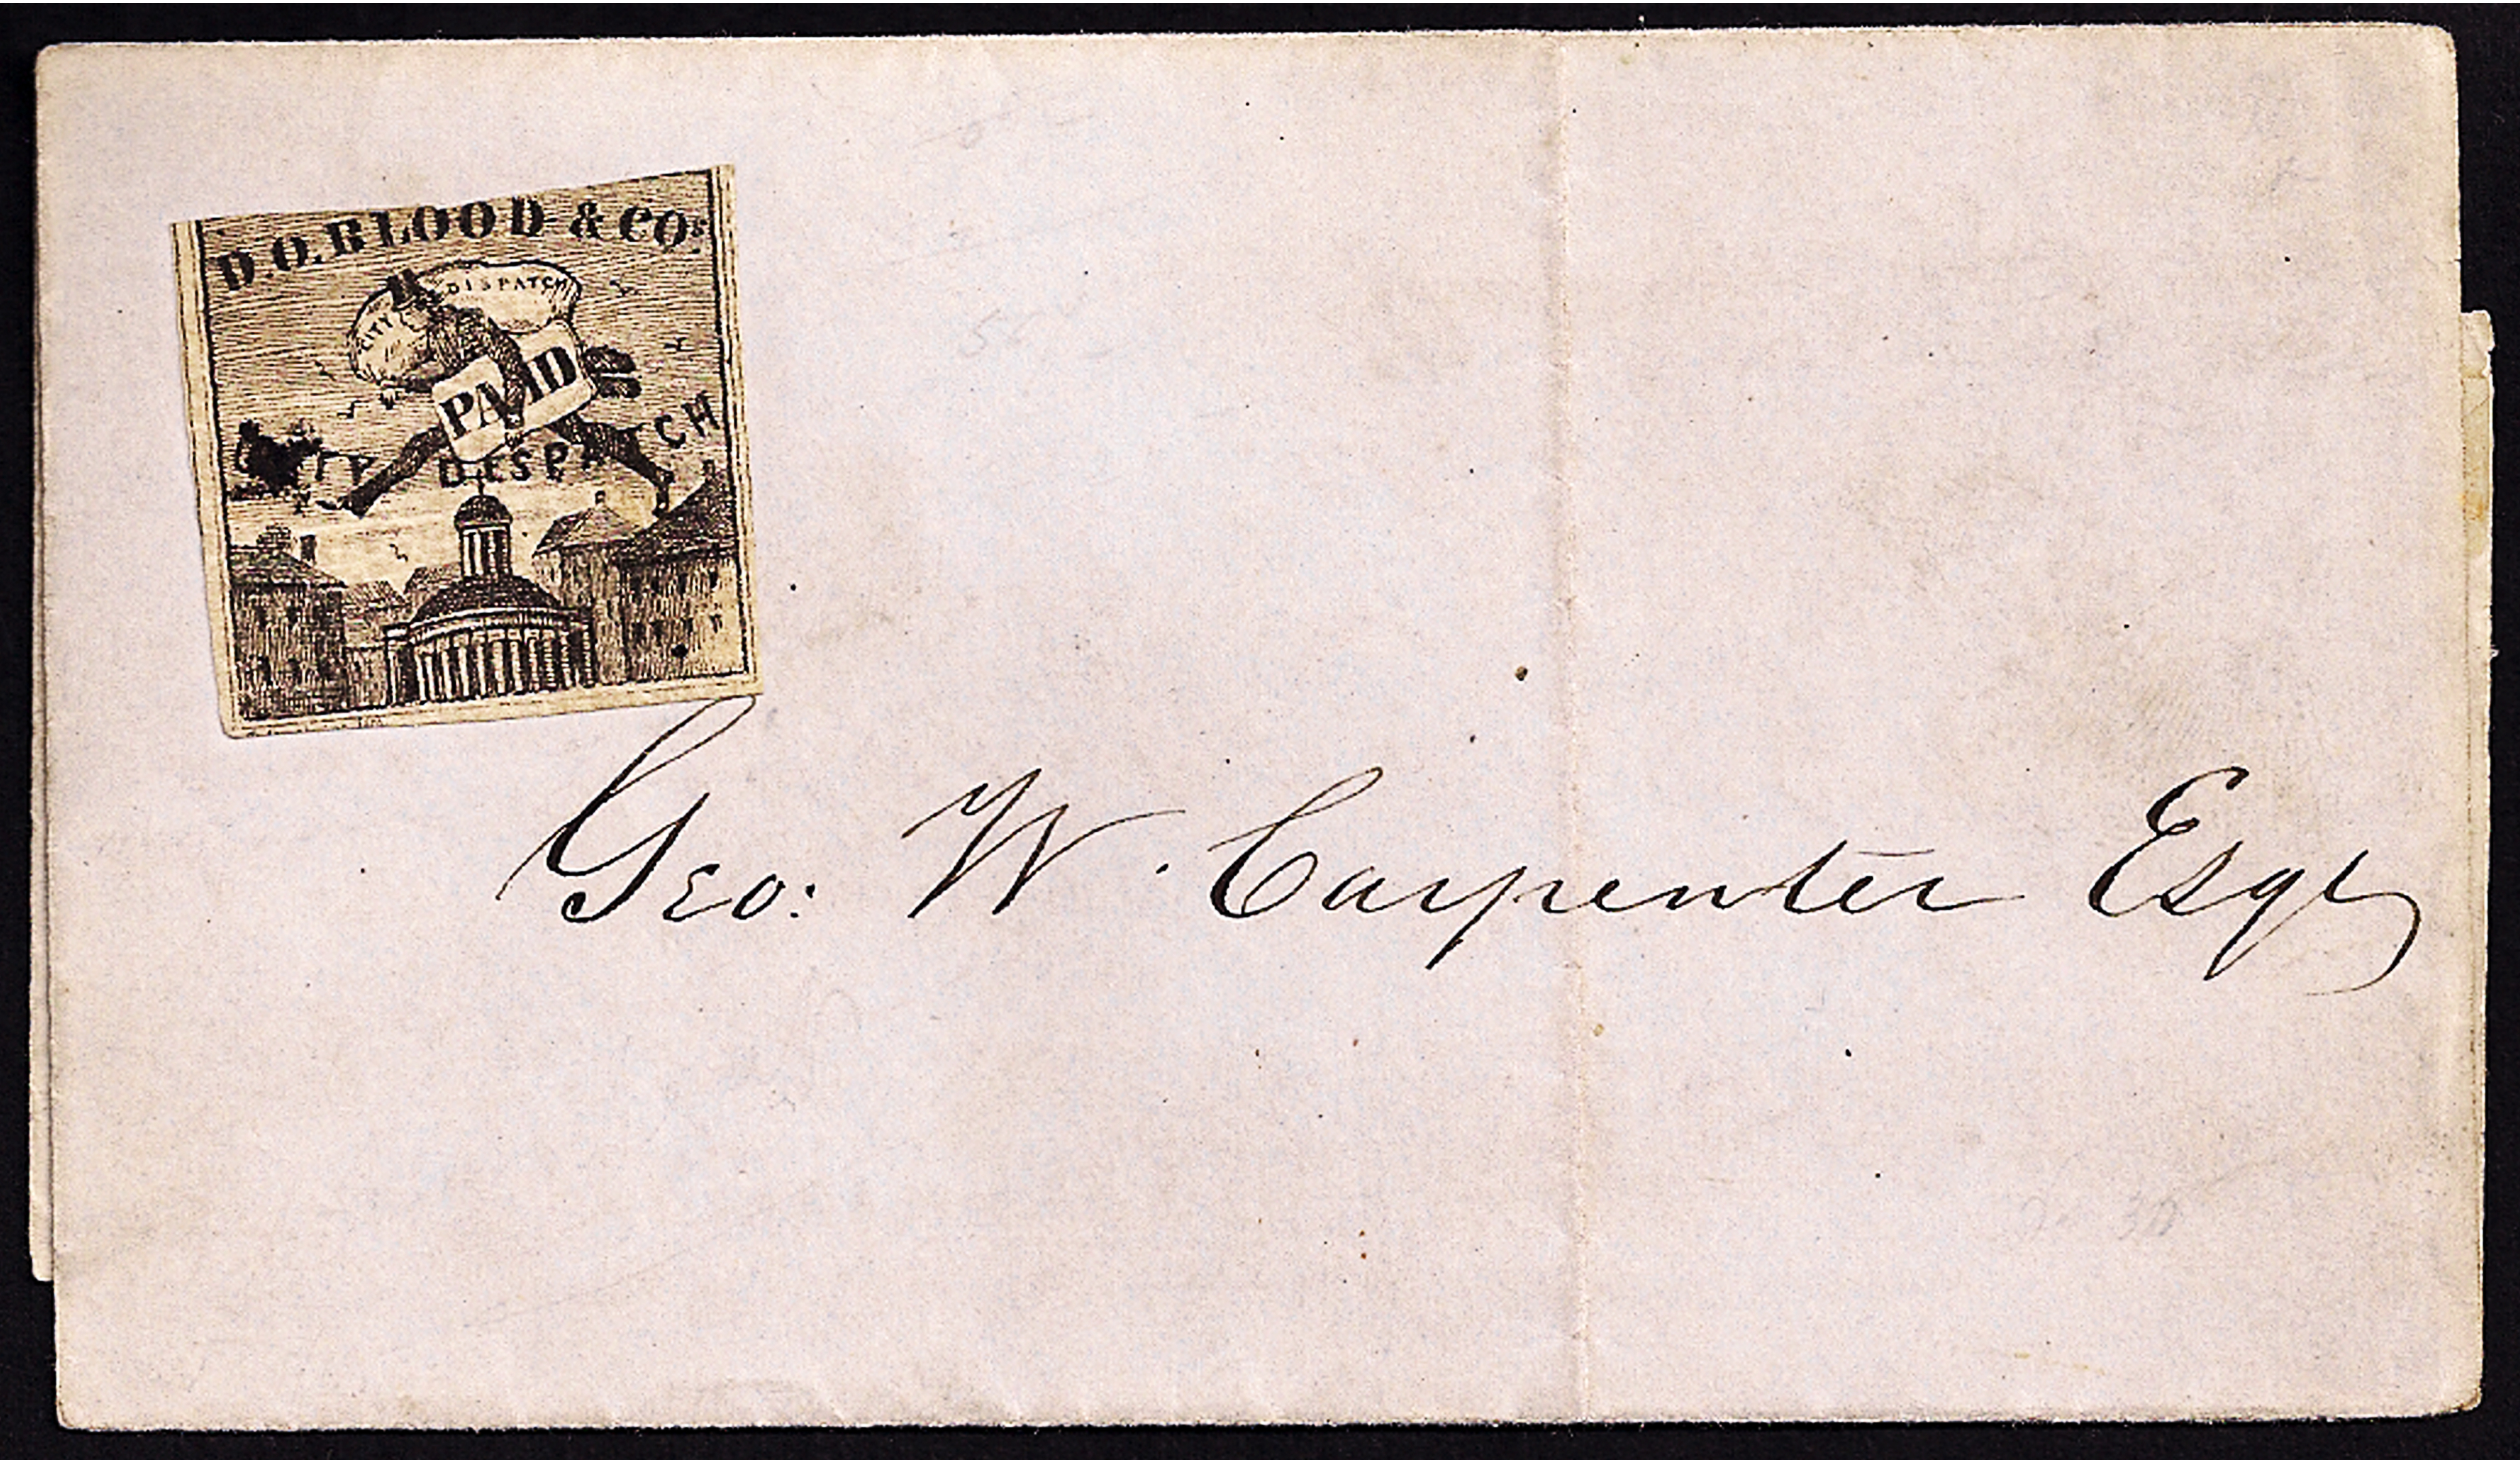 D.O. BLOOD & CO's
CITY DISPATCH
PAID
CITY DESPATCH
Geo: W. Carpenter Esqr